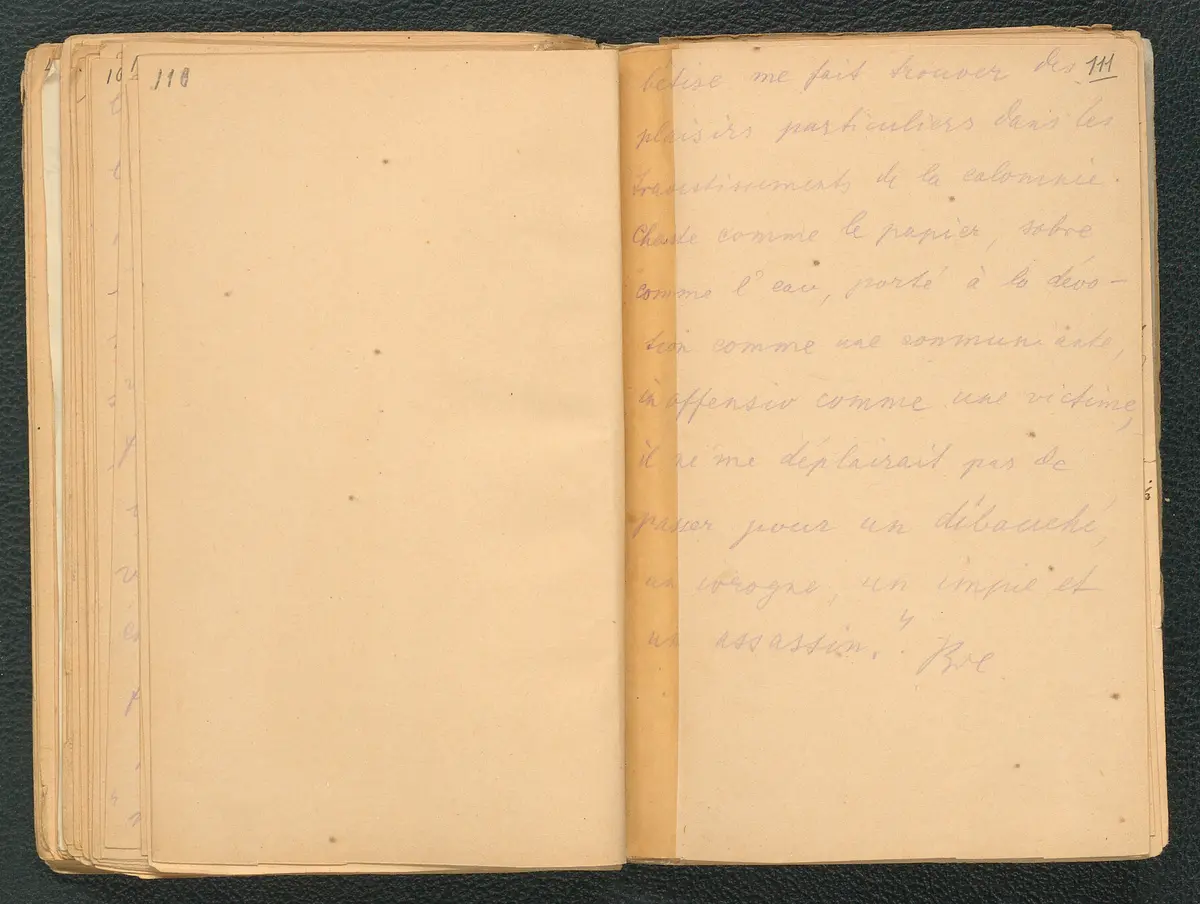 110
111
betise me fait trouver des
plaisirs particuliers dans les
travestissements de la calomnie.
Chaste comme le papier, sobre
comme l'eau, porté à la dévo-
tion comme une communiante,
inoffensiv comme une victime,
il ne me déplairait pas de
passer pour un débauché,
un ivrogne, un impie et
un assassin."